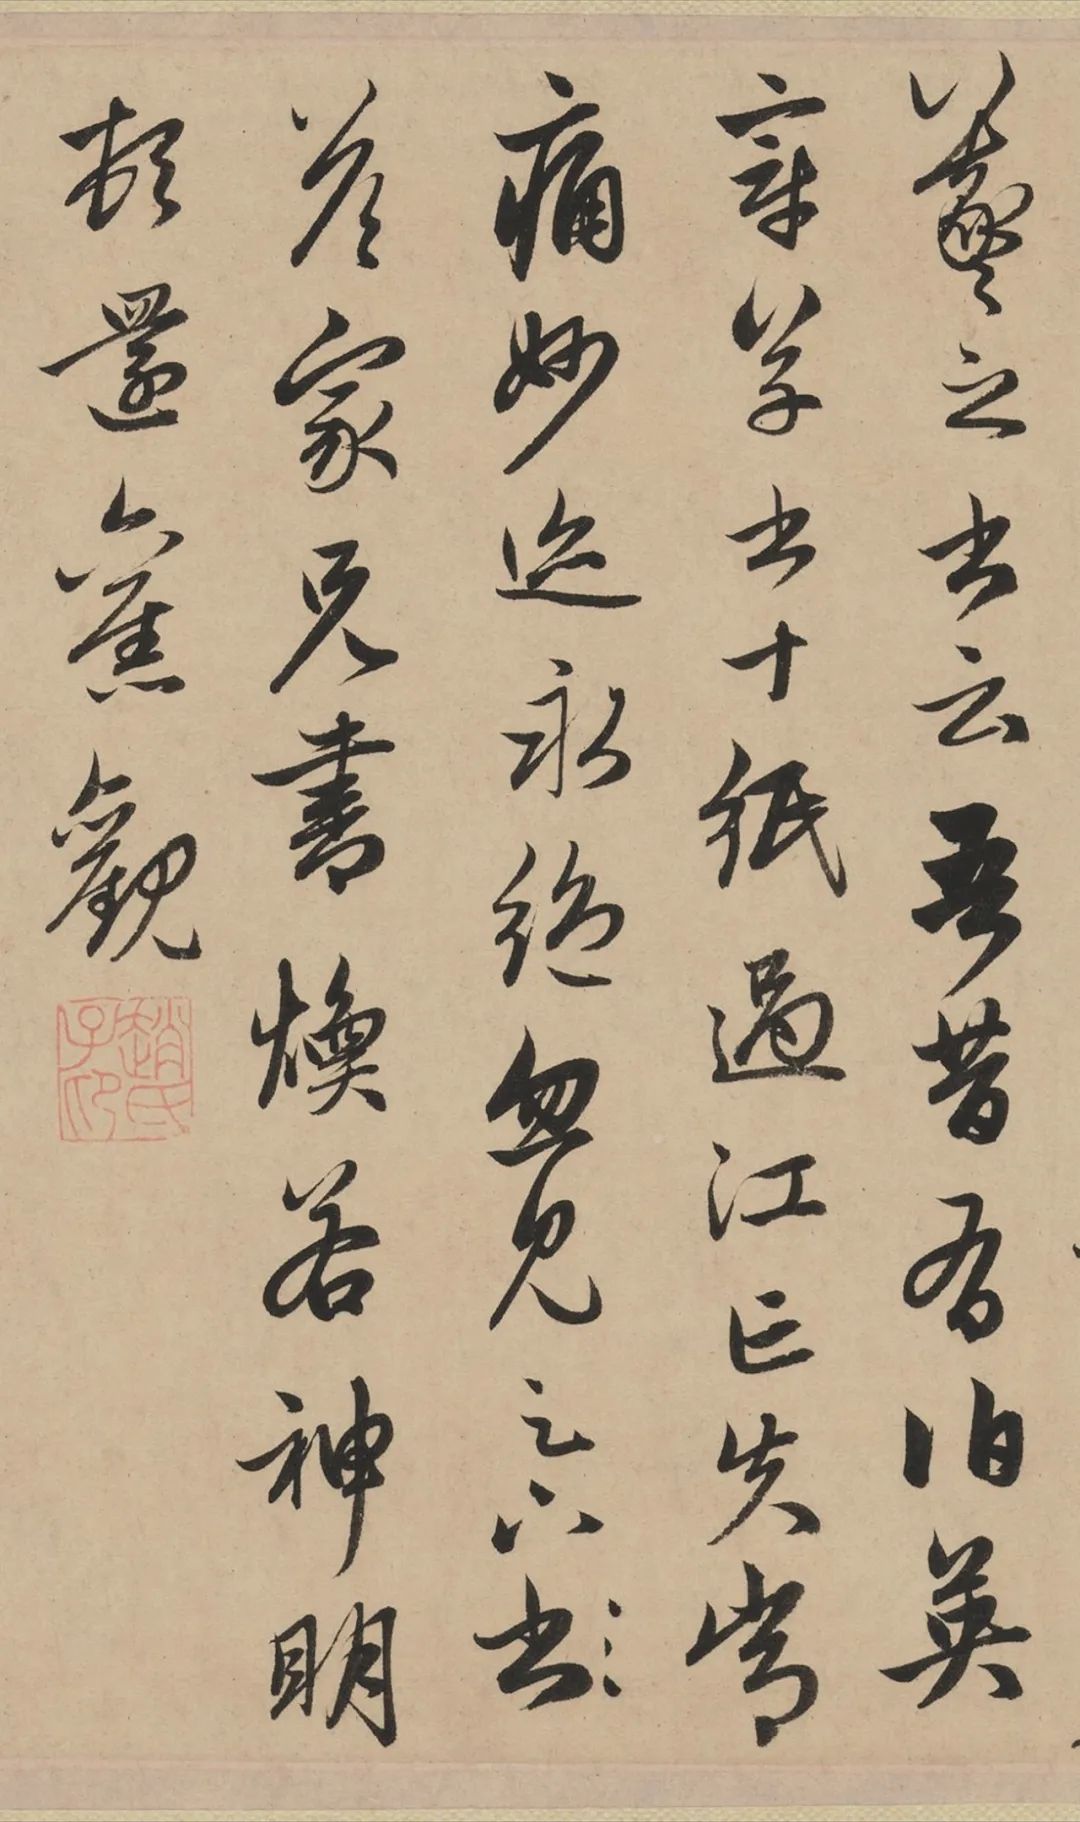 羲之書云吾昔有伯英
章草書十紙過江亡失常
痛妙迹永絕忽見足下書
答家兄書煥若神明
頓還舊觀
趙氏子昂